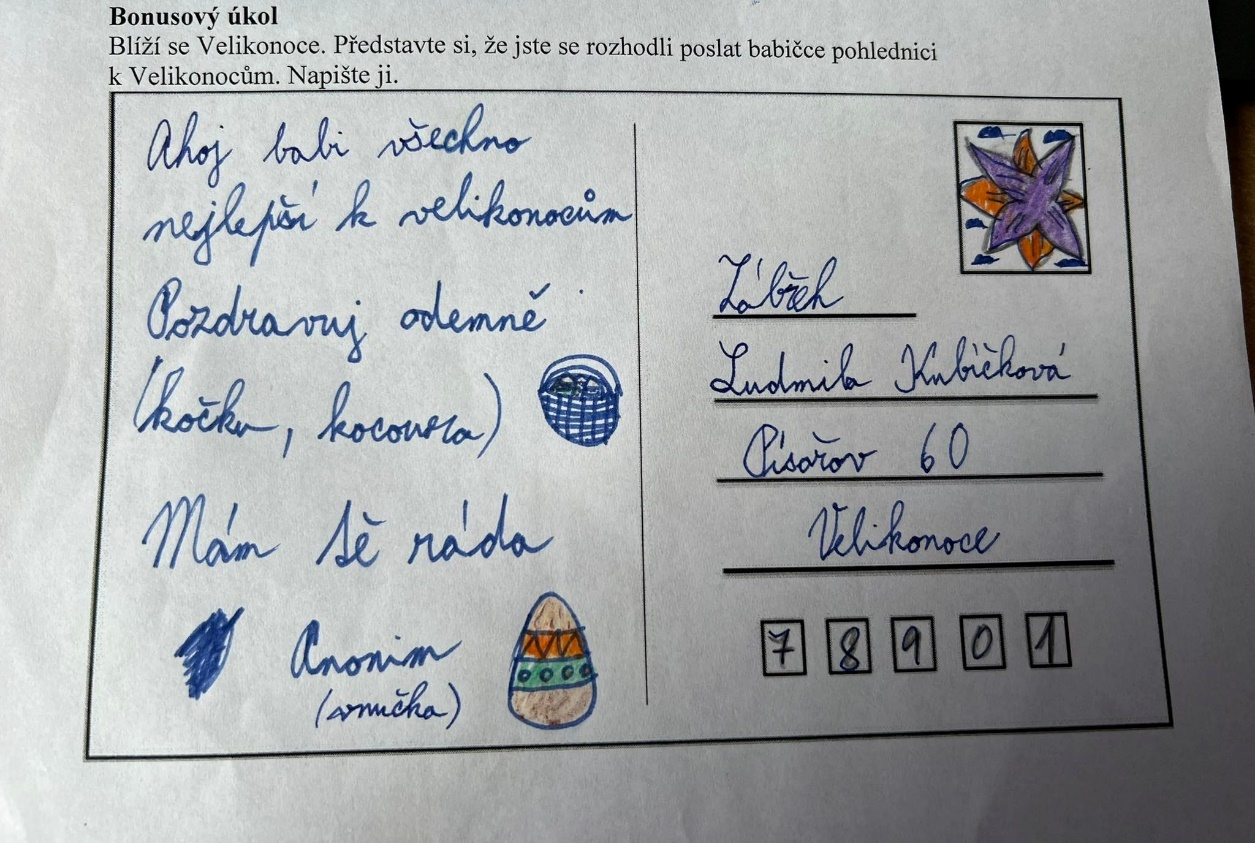 Bonusový úkol
Blíží se Velikonoce. Představte si, že jste se rozhodli poslat babičce pohlednici
k Velikonocům. Napište ji.
Ahoj babi všechno
nejlepší k velikonocům
Pozdravuj odemně
(kočku, kocoura)
Mám tě ráda
Anonim
(vnučka)
Zábřeh
Ludmila Kubíčková
Písařov 60
Velikonoce
7 8 9 0 1